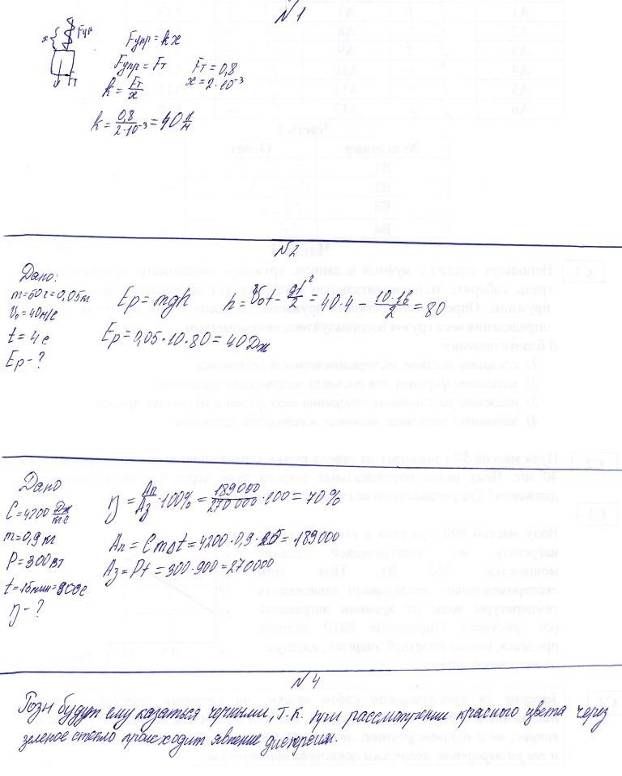 N1
x Fупр
Fт
Fупр = kx
Fупр = Fт Fт = 0,8
k = Fт/x x = 2·10⁻³
k = 0,8/2·10⁻³ = 40 Н/м
N2
Дано:
m = 50г = 0,05кг
V₀ = 40м/с
t = 4с
Eр - ?
Eр = mgh h = V₀t - gt²/2 = 40·4 - 10·16/2 = 80
Eр = 0,05·10·80 = 40Дж
Дано
C = 4200 Дж/кг°С
m = 0,9 кг
P = 300Вт
t = 15мин = 900с
η - ?
η = Ап/Аз · 100% = 189000/270000 · 100 = 70%
Ап = Cm∆t = 4200·0,9· = 189000
Аз = Pt = 300·900 = 270000
N4
Розы будут ему казаться черными, т.к. при рассмотрении красного цвета через
зеленое стекло происходит явление дисперсии.